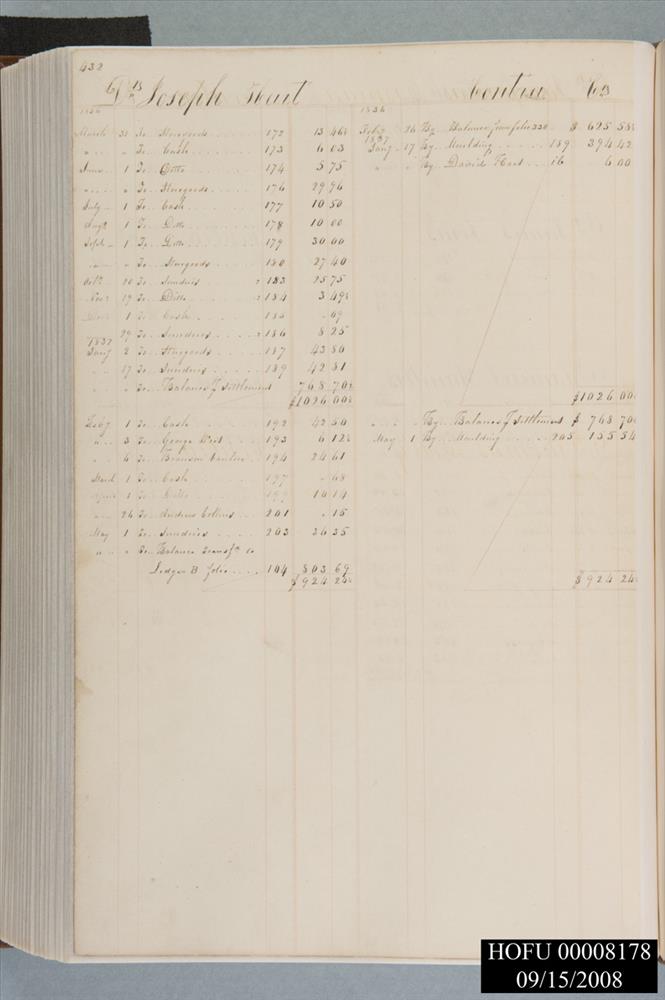 432
Dr Joseph Hart Contra Cr
1836 1836
March 31 To Storegoods 172 13 46½
" " To Cash 173 6 03
June 1 To Ditto 174 5 75
" " To Storegoods 176 29 96
July 1 To Cash 177 10 50
Augt 1 To Ditto 178 10 00
Sept 1 To Ditto 179 30 00
" " To Storegoods 180 27 40
Octr 20 To Sundries 183 25 75
Novr 19 To Ditto 184 3 49½
1 To Cash 185 . 69
29 To Sundries 186 8 25
1837
Jany 2 To Storegoods 187 43 86
" 17 To Sundries 189 42 81
" " To Balance of Settlement 768 70½
$1026 00½
Feby 1 To Cash 192 42 50
" 3 To George 193 6 12½
" 6 To 194 24 61
March 1 To Cash 197 . 68
April 1 To Ditto 199 10 14
" 26 To Andrew Collins 201 . 15
May 1 To Sundries 203 36 35
" " To Balance Transfd to
Ledger B folio 104 803 69
$924 24½
Feby 26 By Balance from folio 330 $ 625 58½
1837
Jany 17 By Moulding 189 394 42
" " By David Hart ib 6 00
$1026 00½
" " By Balance of Settlement $ 768 70½
May 1 By Moulding 205 155 54
$924 24½
HOFU 00008178
09/15/2008